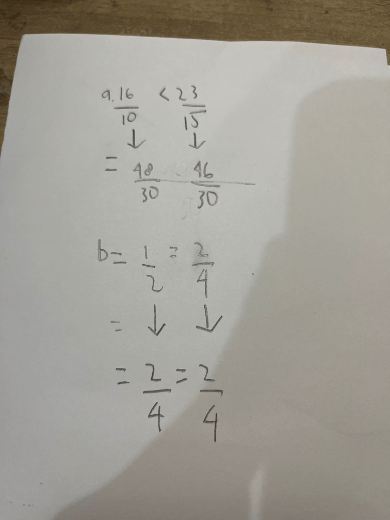 a. 16/10 < 23/15
↓ ↓
= 48/30 46/30
b = 1/2 = 2/4
= ↓ ↓
= 2/4 = 2/4